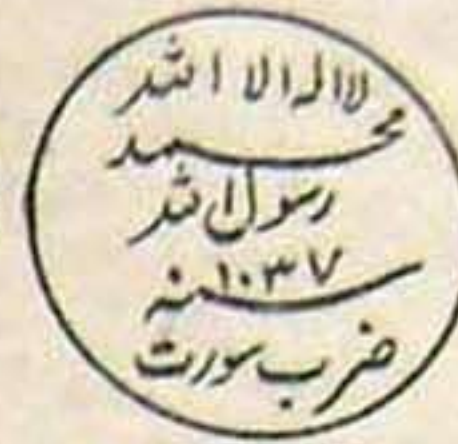 لا اله الا الله
محمد
رسول الله
سنه ١٠٣٧
ضرب سورت